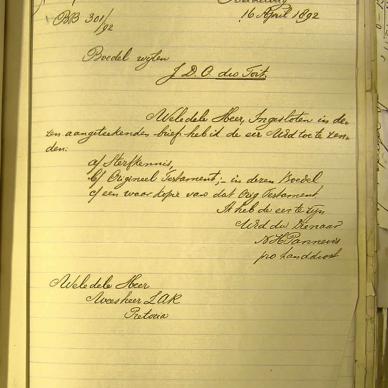 BB 301/92
16 April 1892
Boedel wijlen
J. D. O. du Toit
Weledele Heer, Ingesloten in de-
zen aangeteekenden brief heb ik de eer UEd toe te zen-
den:
a/ Sterfkennis,
b/ Origineel Testament; - in dezen Boedel
c/ een waar kopie van dat Orig Testament
Ik heb de eer te zijn
UEd dw Dienaar
pro Landdrost
Weledele Heer
Weesheer ZAR
Pretoria